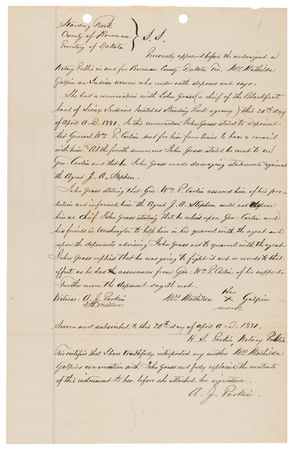 Standing Rock
County of Boreman } S.S.
Territory of Dakota
Personally appeared before the undersigned a
Notary Public in and for Boreman County Dakota Ter. Mrs Mathilda
Galpin an Indian woman who under oath deposes and says;
She had a conversation with John Grass, a chief of the Blackfeet
band of Sioux Indians located at Standing Rock agency, this 20th day
of April A.D. 1881. In the conversation John Grass stated to deponent
that General Wm P. Carlin sent for him four times to have a council
with him. At the fourth summons John Grass stated he went to see
Gen. Carlin and that he John Grass made damaging statements against
the Agent J. A. Stephan.
John Grass stating that Gen. Wm P. Carlin assured him of his pro-
tection and informed him the Agent J. A. Stephan could not depose
him as chief. John Grass stating that he relied upon Gen. Carlin and
his friends in Washington to help him in his quarrel with the agent and
upon the deponents advising John Grass not to quarrel with the agent
John Grass replied that he was going to fight it out or words to that
effect as he has assurances from Gen. Wm P. Carlin of his support.
Further more the deponent sayeth not.
Witness: A. J. Parkin Mrs Mathilda Her X mark Galpin
Sworn and subscribed to this 20th day of April A.D. 1881.
H. S. Parkin, Notary Public
This certifies that I have truthfully interpreted my mother Mrs Mathilda
Galpins conversation with John Grass and fully explained the contents
of this instrument to her before she attached her signature.
A. J. Parkin.